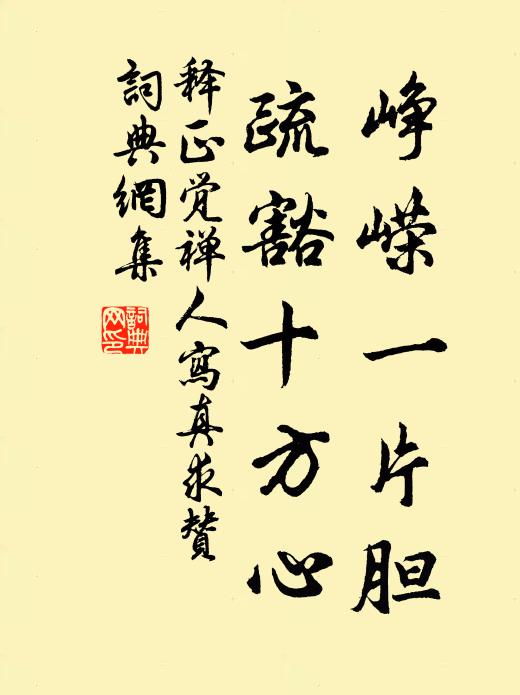 峥嵘一片胆
疏豁十方心
释正觉禅人寫真求贊
詞典網集
詞典网印